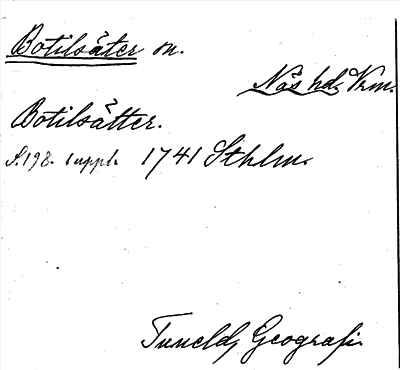 Botilsäter sn.
Näs hd, Vrm.
Botilsätter.
S. 198. suppl. 1741 Sthlm.
Tunelds Geografi.